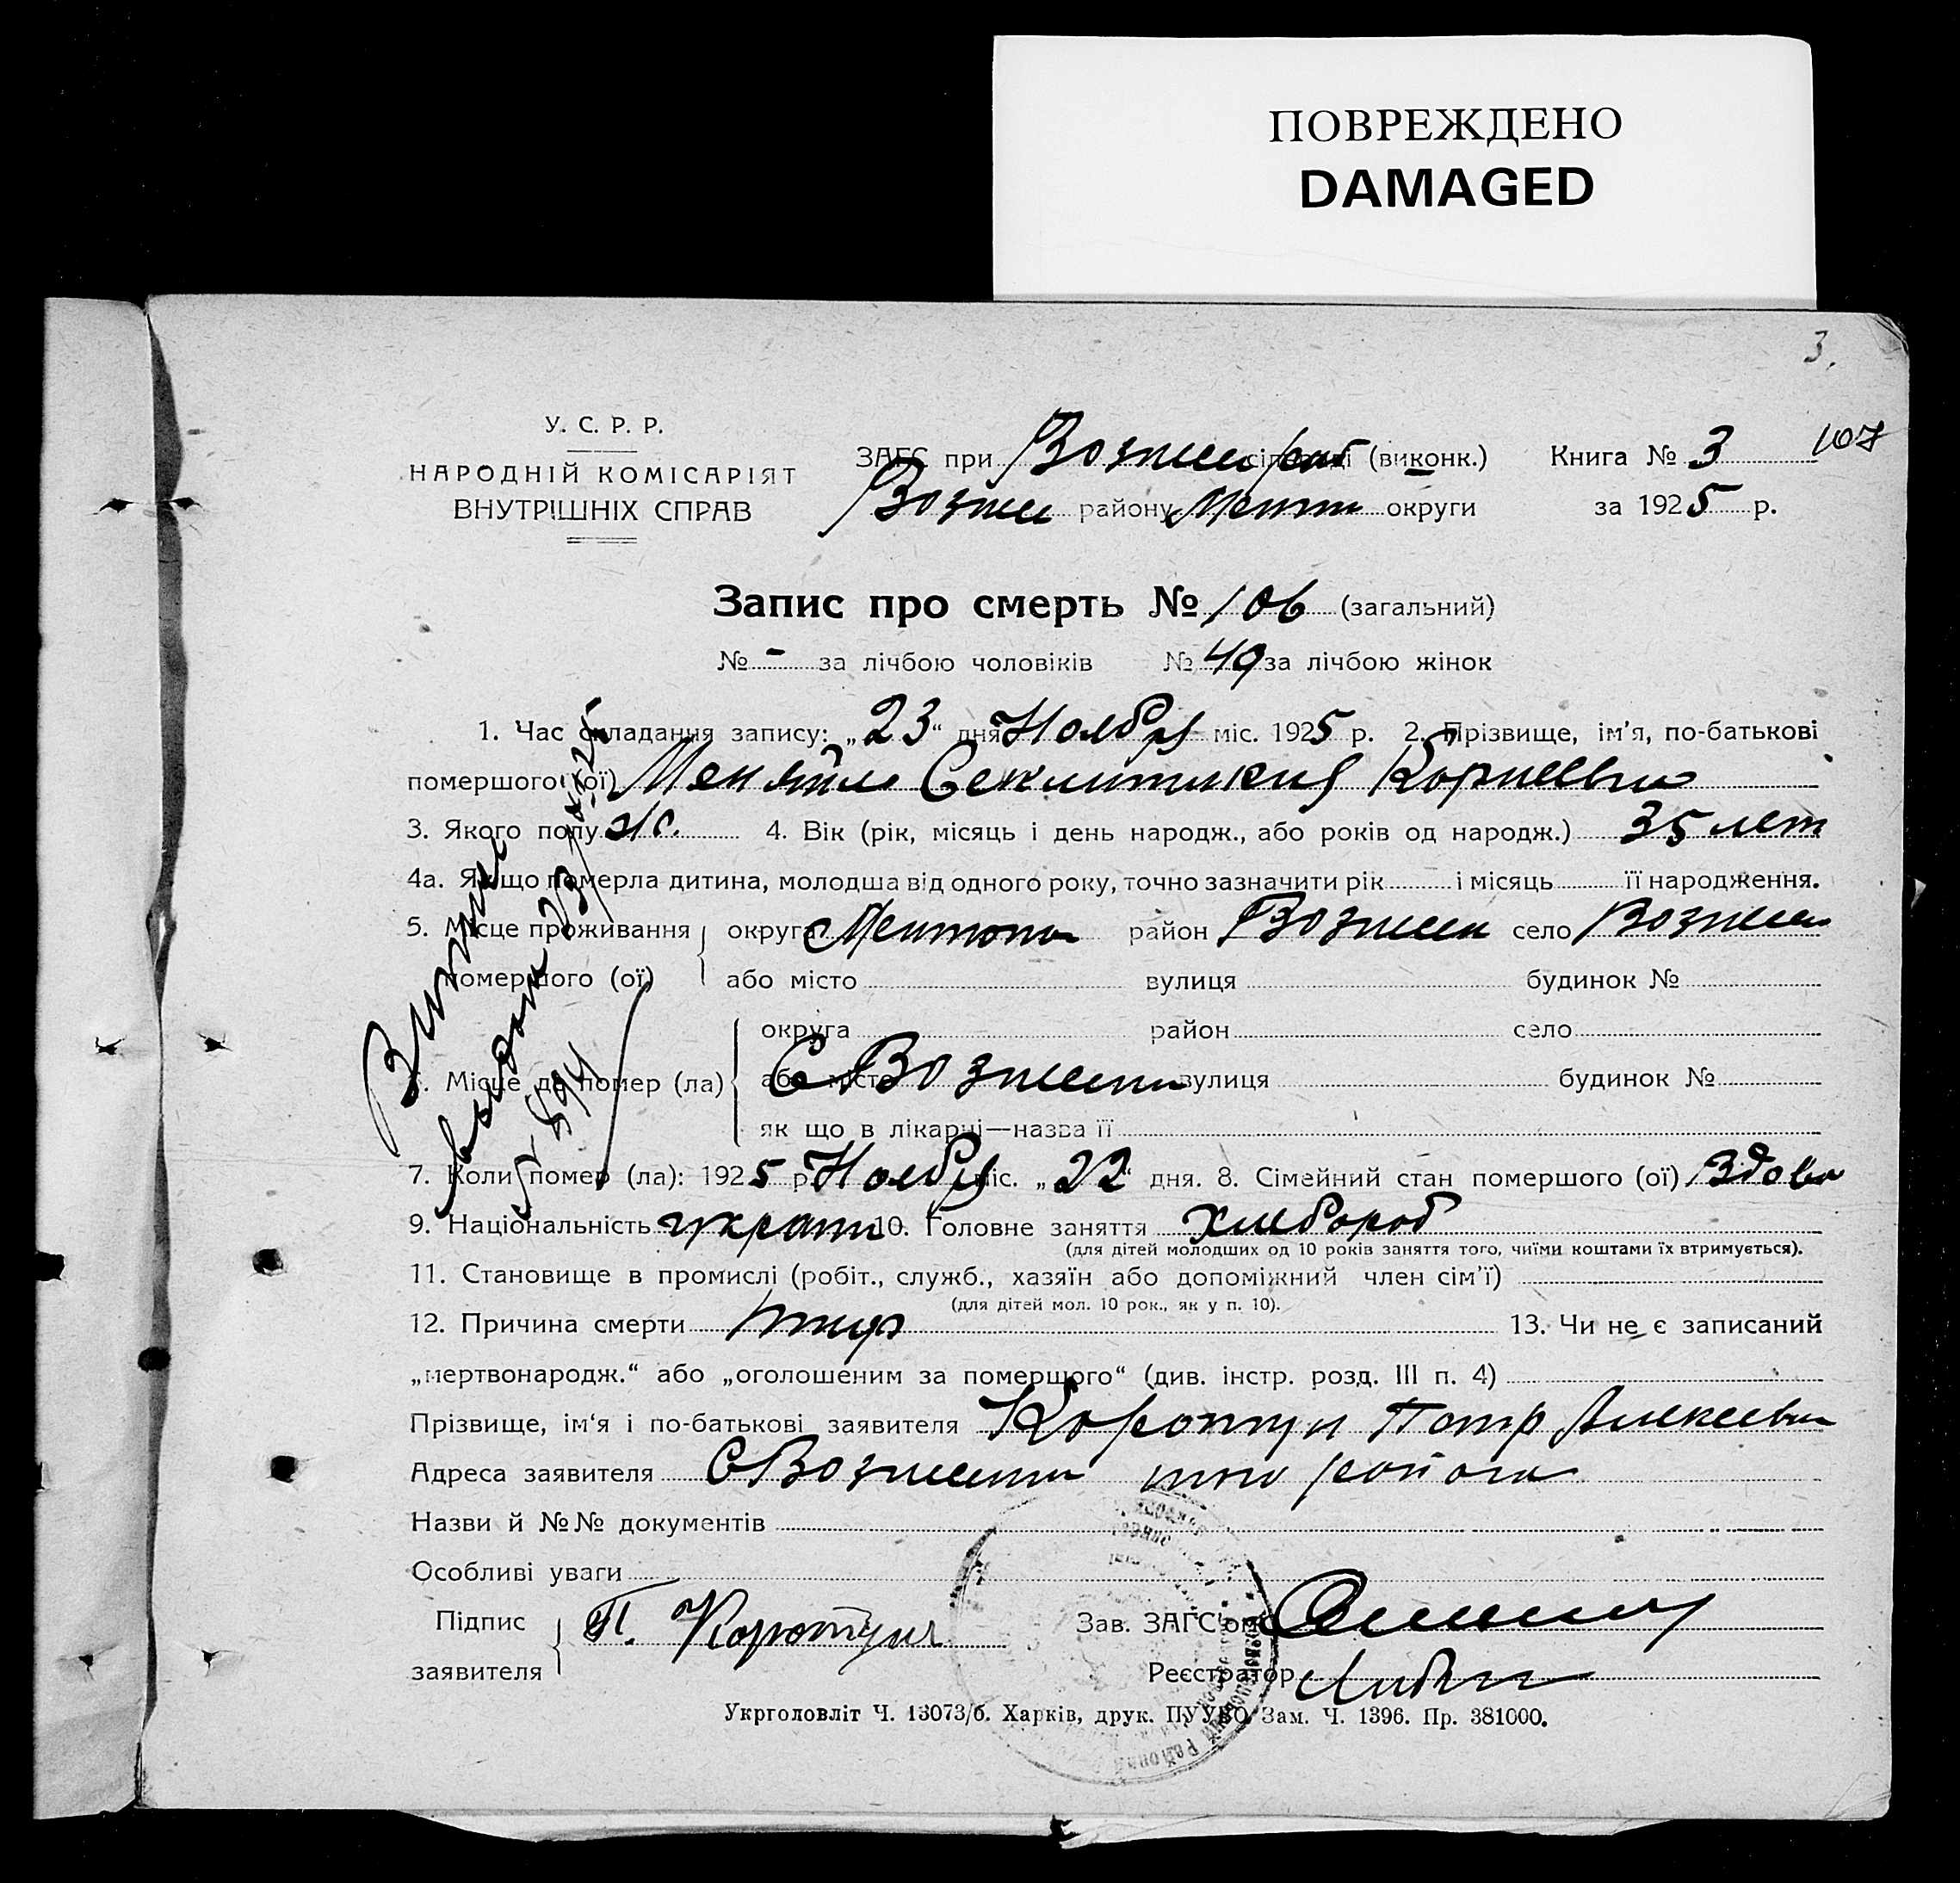 ПОВРЕЖДЕНО
DAMAGED
3.
107
У. С. Р. Р.
НАРОДНІЙ КОМІСАРІЯТ
ВНУТРІШНІХ СПРАВ
ЗАГС при Вознесен рай (виконк.)
Книга № 3
Вознес району Мелит округи
за 1925 р.
Запис про смерть № 106 (загальний)
№ - за лічбою чоловіків № 49 за лічбою жінок
1. Час складання запису: „23“ дня Ноября міс. 1925 р. 2. Прізвище, ім'я, по-батькові
помершого (ої) Корнеевна
3. Якого полу ж. 4. Вік (рік, місяць і день народж., або років од народж.) 35 лет
4а. Якщо померла дитина, молодша від одного року, точно зазначити рік і місяць її народження.
5. Місце проживання округа Мелитоп район Вознесен село Вознесен
помершого (ої) або місто вулиця будинок №
округа район село
Місце де помер (ла) або місто С Вознесенка вулиця будинок №
як що в лікарні—назва її
7. Коли помер (ла): 1925 р. Ноября міс. „22“ дня. 8. Сімейний стан помершого (ої) Вдова
9. Національність украин 10. Головне заняття хлебороб
(для дітей молодших од 10 років заняття того, чиїми коштами їх втримується).
11. Становище в промислі (робіт., служб., хазяїн або допоміжний член сім'ї)
(для дітей мол. 10 рок., як у п. 10).
12. Причина смерти тиф 13. Чи не є записаний
„мертвонародж.“ або „оголошеним за померщого“ (див. інстр. розд. III п. 4)
Прізвище, ім'я і по-батькові заявителя Коротун Петр Алексеевич
Адреса заявителя С Вознесенка того района
Назви й №№ документів
Особливі уваги
Підпис П. Коротун Зав. ЗАГС'ом
заявителя Реєстратор
Укрголовліт Ч. 13073/б. Харків, друк. ПУУВО Зам. Ч. 1396. Пр. 381000.